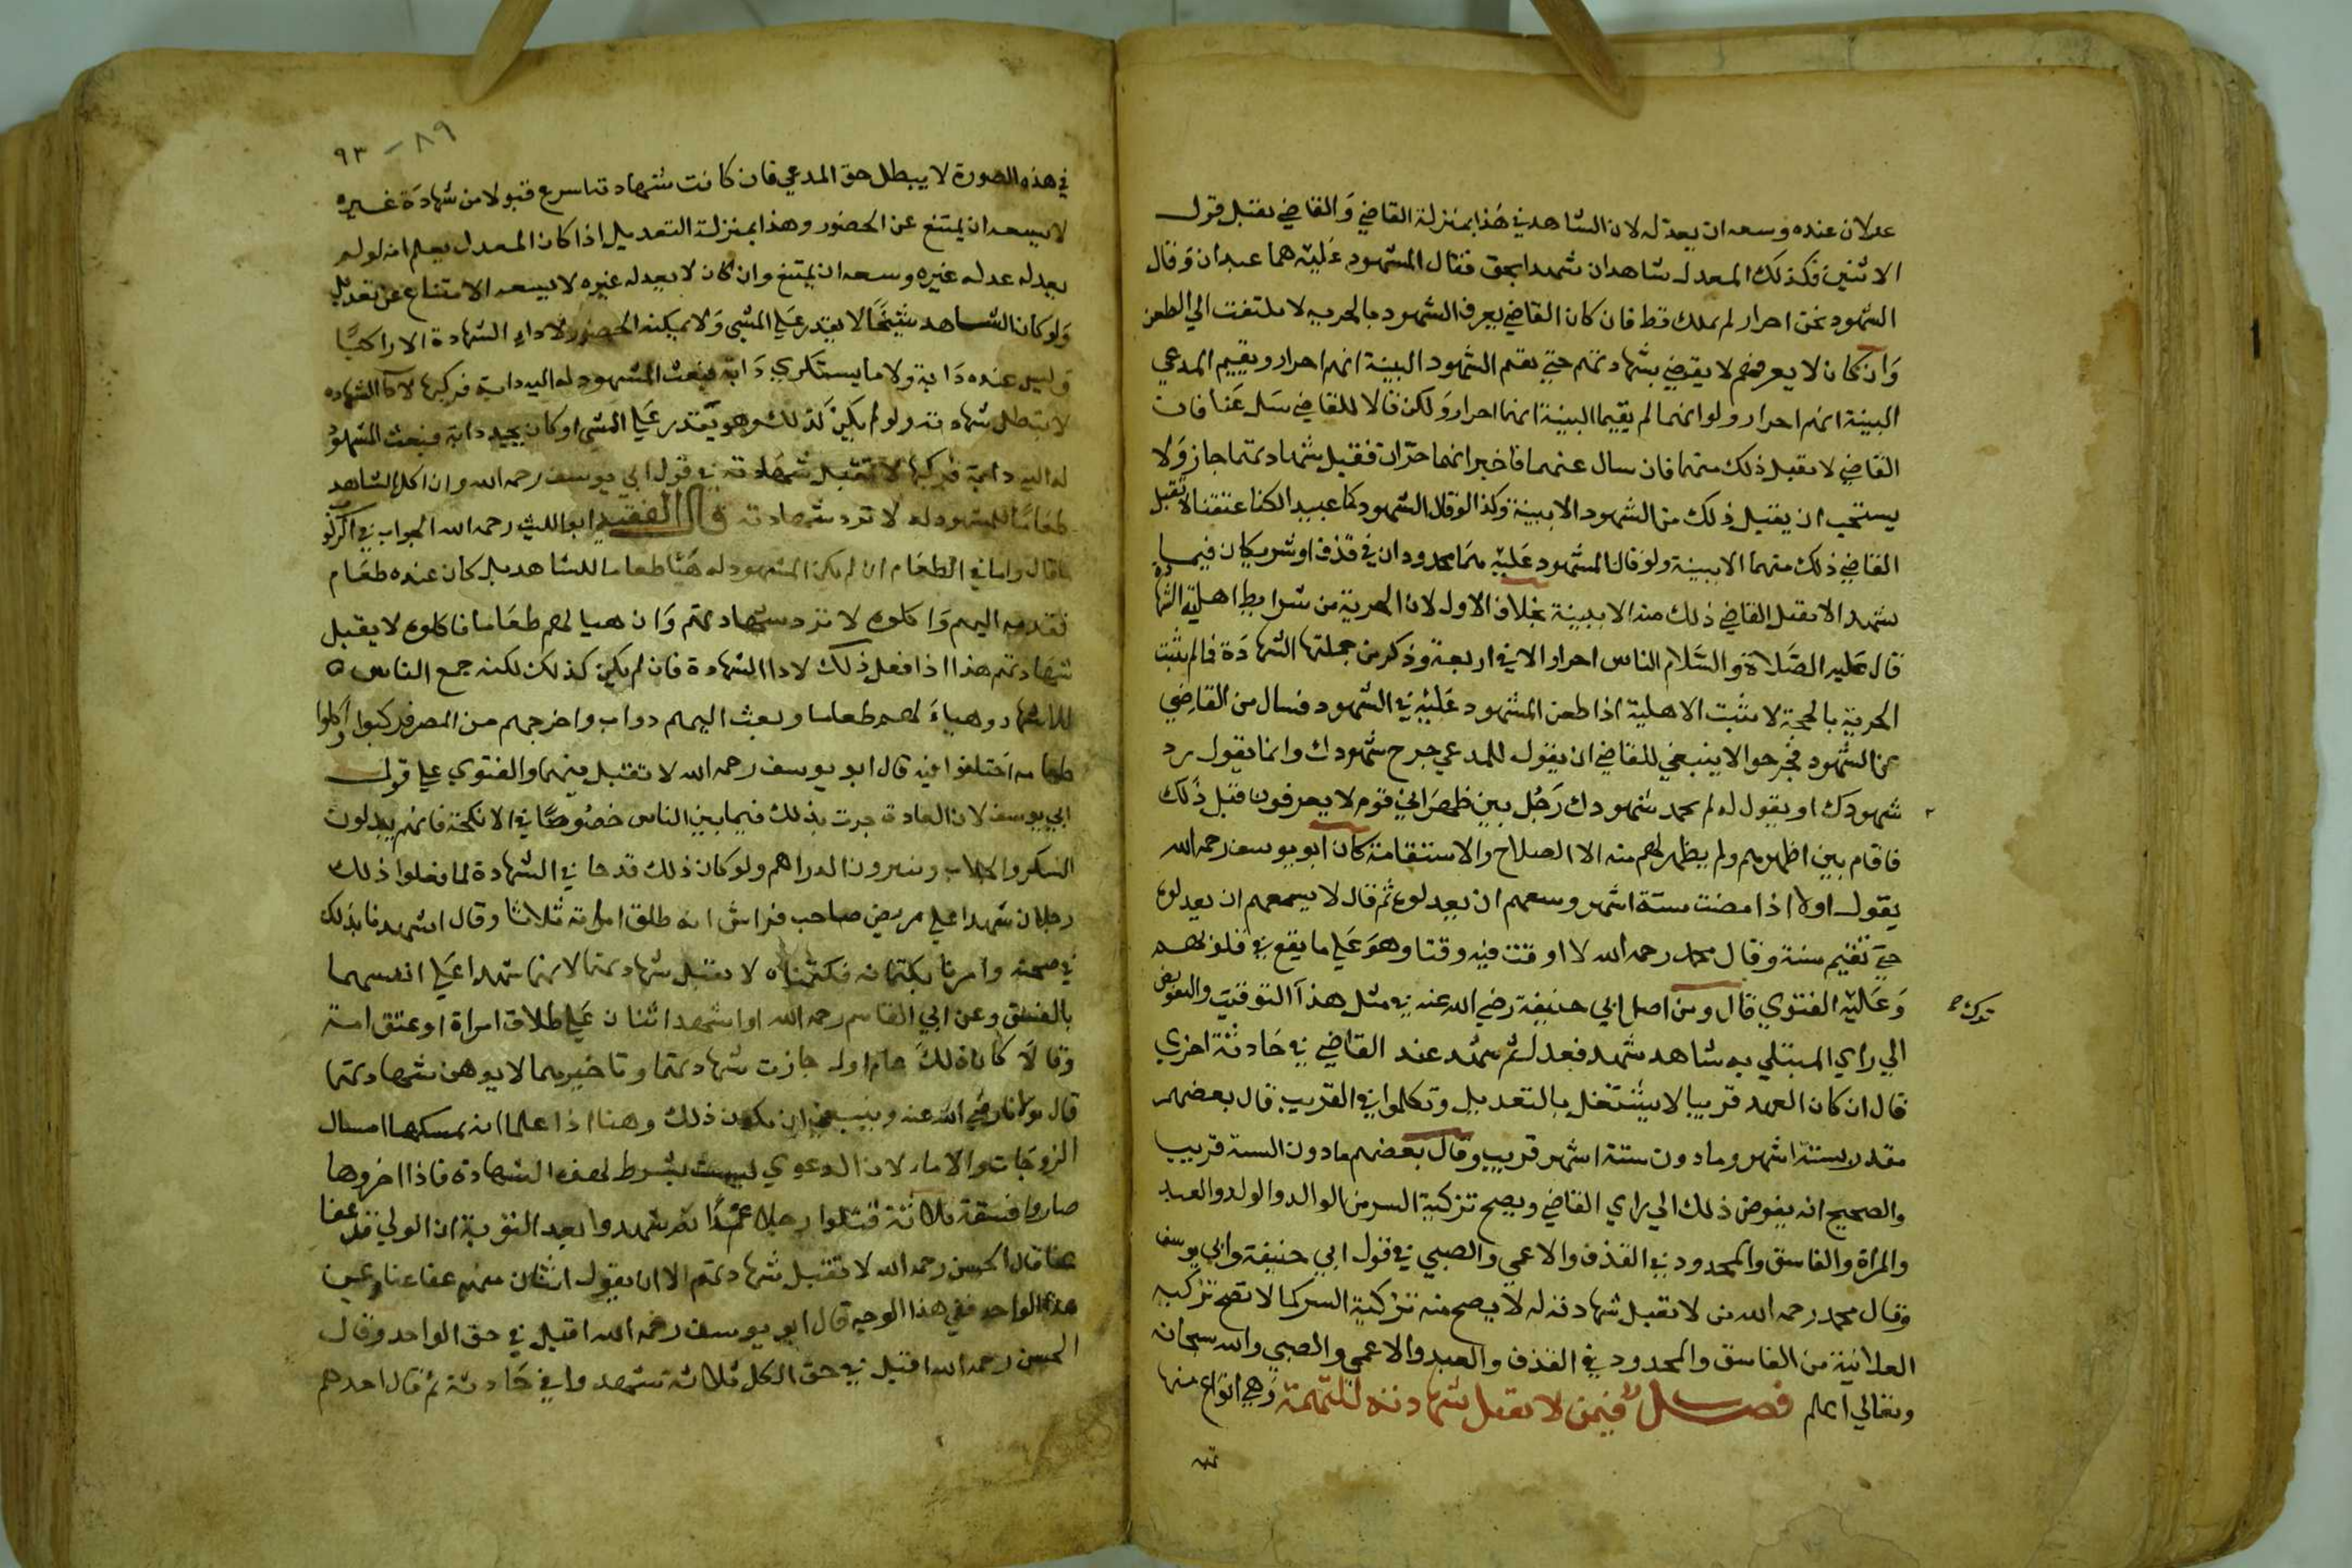 عدلان عنده وسعه ان يعدله لان الشاهد في هذا بمنزلة القاضي والقاضي يقبل قول
الاثنين فكذلك المعدل شاهدان شهدا بحق فقال المشهود عليه هما عبدان وقال
الشهود نحن احرار لم نملك قط فان كان القاضي يعرف الشهود بالحرية لا يلتفت الي الطعن
وان كان لا يعرفهم لا يقضي بشهادتهم حتي يقيم الشهود البينة انهم احرار ويقيم المدعي
البينة انهم احرار ولو انهما لم يقيما البينة انهما احرار ولكن قالا للقاضي سل عنا فان
القاضي لا يقبل ذلك منهما فان سال عنهما فاخبر انهما حران فقبل شهادتهما جاز ولا
يستحب ان يقبل ذلك من الشهود الا ببينة وكذا لو قال الشهود كنا عبيدا لكنا عتقنا لا يقبل
القاضي ذلك منهما الا ببينة ولو قال المشهود عليه هما محدودان في قذف او شريكان فيما
شهدا لا يقبل القاضي ذلك منه الا ببينة بخلاف الاول لان الحرية من شرايط اهلية الشهادة
قال عليه الصلاة والسلام الناس احرار الا في اربعة وذكر من جملتها الشهادة فما لم يثبت
الحرية بالحجة لا يثبت الاهلية اذا طعن المشهود عليه في الشهود فسال من القاضي
عن الشهود فجرحوا لا ينبغي للقاضي ان يقول للمدعي جرح شهودك وانما يقول زد
شهودك او يقول له لم يحمد شهودك رجل بين ظهراني قوم لا يعرفونه قبل ذلك
فاقام بين اظهرهم ولم يظهر لهم منه الا الصلاح والاستقامة كان ابو يوسف رحمه الله
يقول اولا اذا مضت ستة اشهر وسعهم ان يعدلوه ثم قال لا يسعهم ان يعدلوه
حتي تقيم سنة وقال محمد رحمه الله لا اوقت فيه وقتا وهو علي ما يقع في قلوبهم
وعليه الفتوي قال ومن اصل ابي حنيفة رضي الله عنه في مثل هذا التوقيت والتفويض
الي راي المبتلي به شاهد شهد فعدل ثم شهد عند القاضي في حادثة اخري
قال ان كان العهد قريبا لا يشتغل بالتعديل وتكلموا في القريب قال بعضهم
مقدر بستة اشهر وما دون ستة اشهر قريب وقال بعضهم ما دون السنة قريب
والصحيح انه يفوض ذلك الي راي القاضي ويصح تزكية السر من الوالد والولد والعبد
والمراة والفاسق والمحدود في القذف والاعمي والصبي في قول ابي حنيفة وابي يوسف
وقال محمد رحمه الله من لا تقبل شهادته له لا يصح منه تزكية السر كما لا تصح تزكية
العلانية من الفاسق والمحدود في القذف والعبد والاعمي والصبي والله سبحانه
وتعالي اعلم فصل فيمن لا تقبل شهادته للتهمة وهي انواع منها
٨٩ - ٩٣
في هذه الصورة لا يبطل حق المدعي فان كانت شهادته اسرع قبولا من شهادة غيره
لا يسعه ان يمتنع عن الحضور وهذا بمنزلة التعديل اذا كان المعدل يعلم انه لو لم
يعدله عدله غيره وسعه ان يمتنع وان كان لا يعدله غيره لا يسعه الامتناع عن تعديله
ولو كان الشاهد شيخا لا يقدر علي المشي ولا يمكنه الحضور لاداء الشهادة الا راكبا
وليس عنده دابة ولا ما يستكري دابة فبعث المشهود له اليه دابة فركبها لاداء الشهادة
لا تبطل شهادته ولو لم يكن كذلك وهو يقدر علي المشي او كان يجد دابة فبعث المشهود
له اليه دابة فركبها لا تقبل شهادته في قول ابي يوسف رحمه الله وان اكل الشاهد
طعاما للمشهود له لا ترد شهادته قال الفقيه ابو الليث رحمه الله الجواب في الركوب
ما قال واما في الطعام ان لم يكن المشهود له هيأ طعاما للشاهد بل كان عنده طعام
فقدمه اليهم واكلوه لا ترد شهادتهم وان هيا لهم طعاما فاكلوه لا يقبل
شهادتهم هذا اذا فعل ذلك لاداء الشهادة فان لم يكن كذلك لكنه جمع الناس
للاستشهاد وهياء لهم طعاما وبعث اليهم دواب واخرجهم من المصر فركبوا واكلوا
طعامه اختلفوا فيه قال ابو يوسف رحمه الله لا تقبل فيهما والفتوي علي قول
ابي يوسف لان العادة جرت بذلك فيما بين الناس خصوصا في الانكحة فانهم يبذلون
السكر والجلاب وينثرون الدراهم ولو كان ذلك قدحا في الشهادة لما فعلوا ذلك
رجلان شهدا علي مريض صاحب فراش انه طلق امراته ثلاثا وقال اشهدنا بذلك
في صحته وامرنا بكتمانه فكتمناه لا تقبل شهادتهما لانهما شهدا علي انفسهما
بالفسق وعن ابي القاسم رحمه الله اذا شهد اثنان علي طلاق امراة او عتق امة
وقالا كان ذلك عام اول جازت شهادتهما وتاخيرهما لا يوهن شهادتهما
قال مولانا رضي الله عنه وينبغي ان يكون ذلك وهنا اذا علما انه يمسكها امساك
الزوجات والاماء لان الدعوي ليست بشرط لهذه الشهادة فاذا اخروها
صاروا فسقة ثلاثة قتلوا رجلا عمدا ثم شهدوا بعد التوبة ان الولي قد عفا
عنا قال الحسن رحمه الله لا تقبل شهادتهم الا ان يقول اثنان منهم عفا عنا وعن
هذا الواحد ففي هذا الوجه قال ابو يوسف رحمه الله اقبل في حق الواحد وقال
الحسن رحمه الله اقبل في حق الكل ثلاثة شهدوا في حادثة ثم قال احدهم